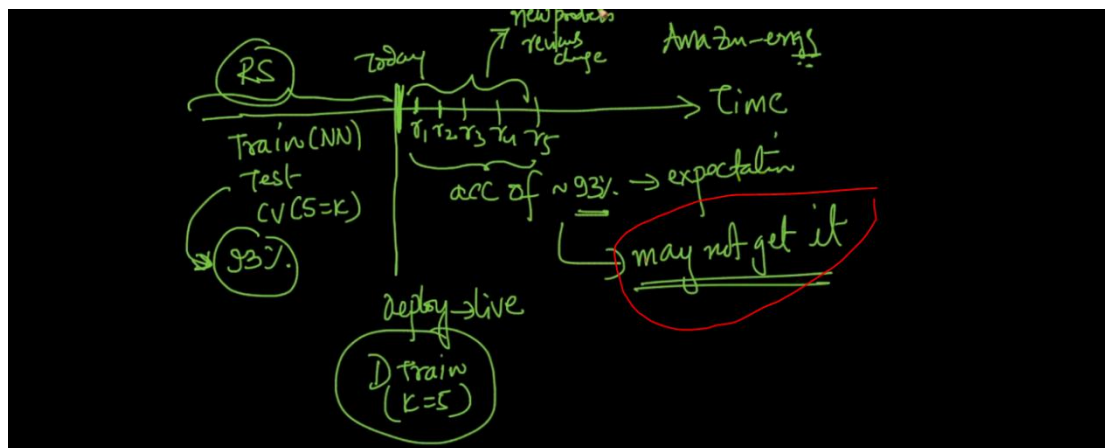 new products
reviews
change
Amazon-engg
RS
Today
Time
r1 r2 r3 r4 r5
Train (NN)
Test
CV (5=K)
93%.
acc of ~93%. → expectation
may not get it
deploy → live
D Train
(K=5)